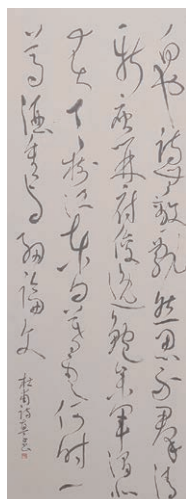 白也詩無敵飄然思不群清
新庾開府俊逸鮑參軍渭北
春天樹江東日暮雲何時一
尊酒重與細論文
杜甫詩